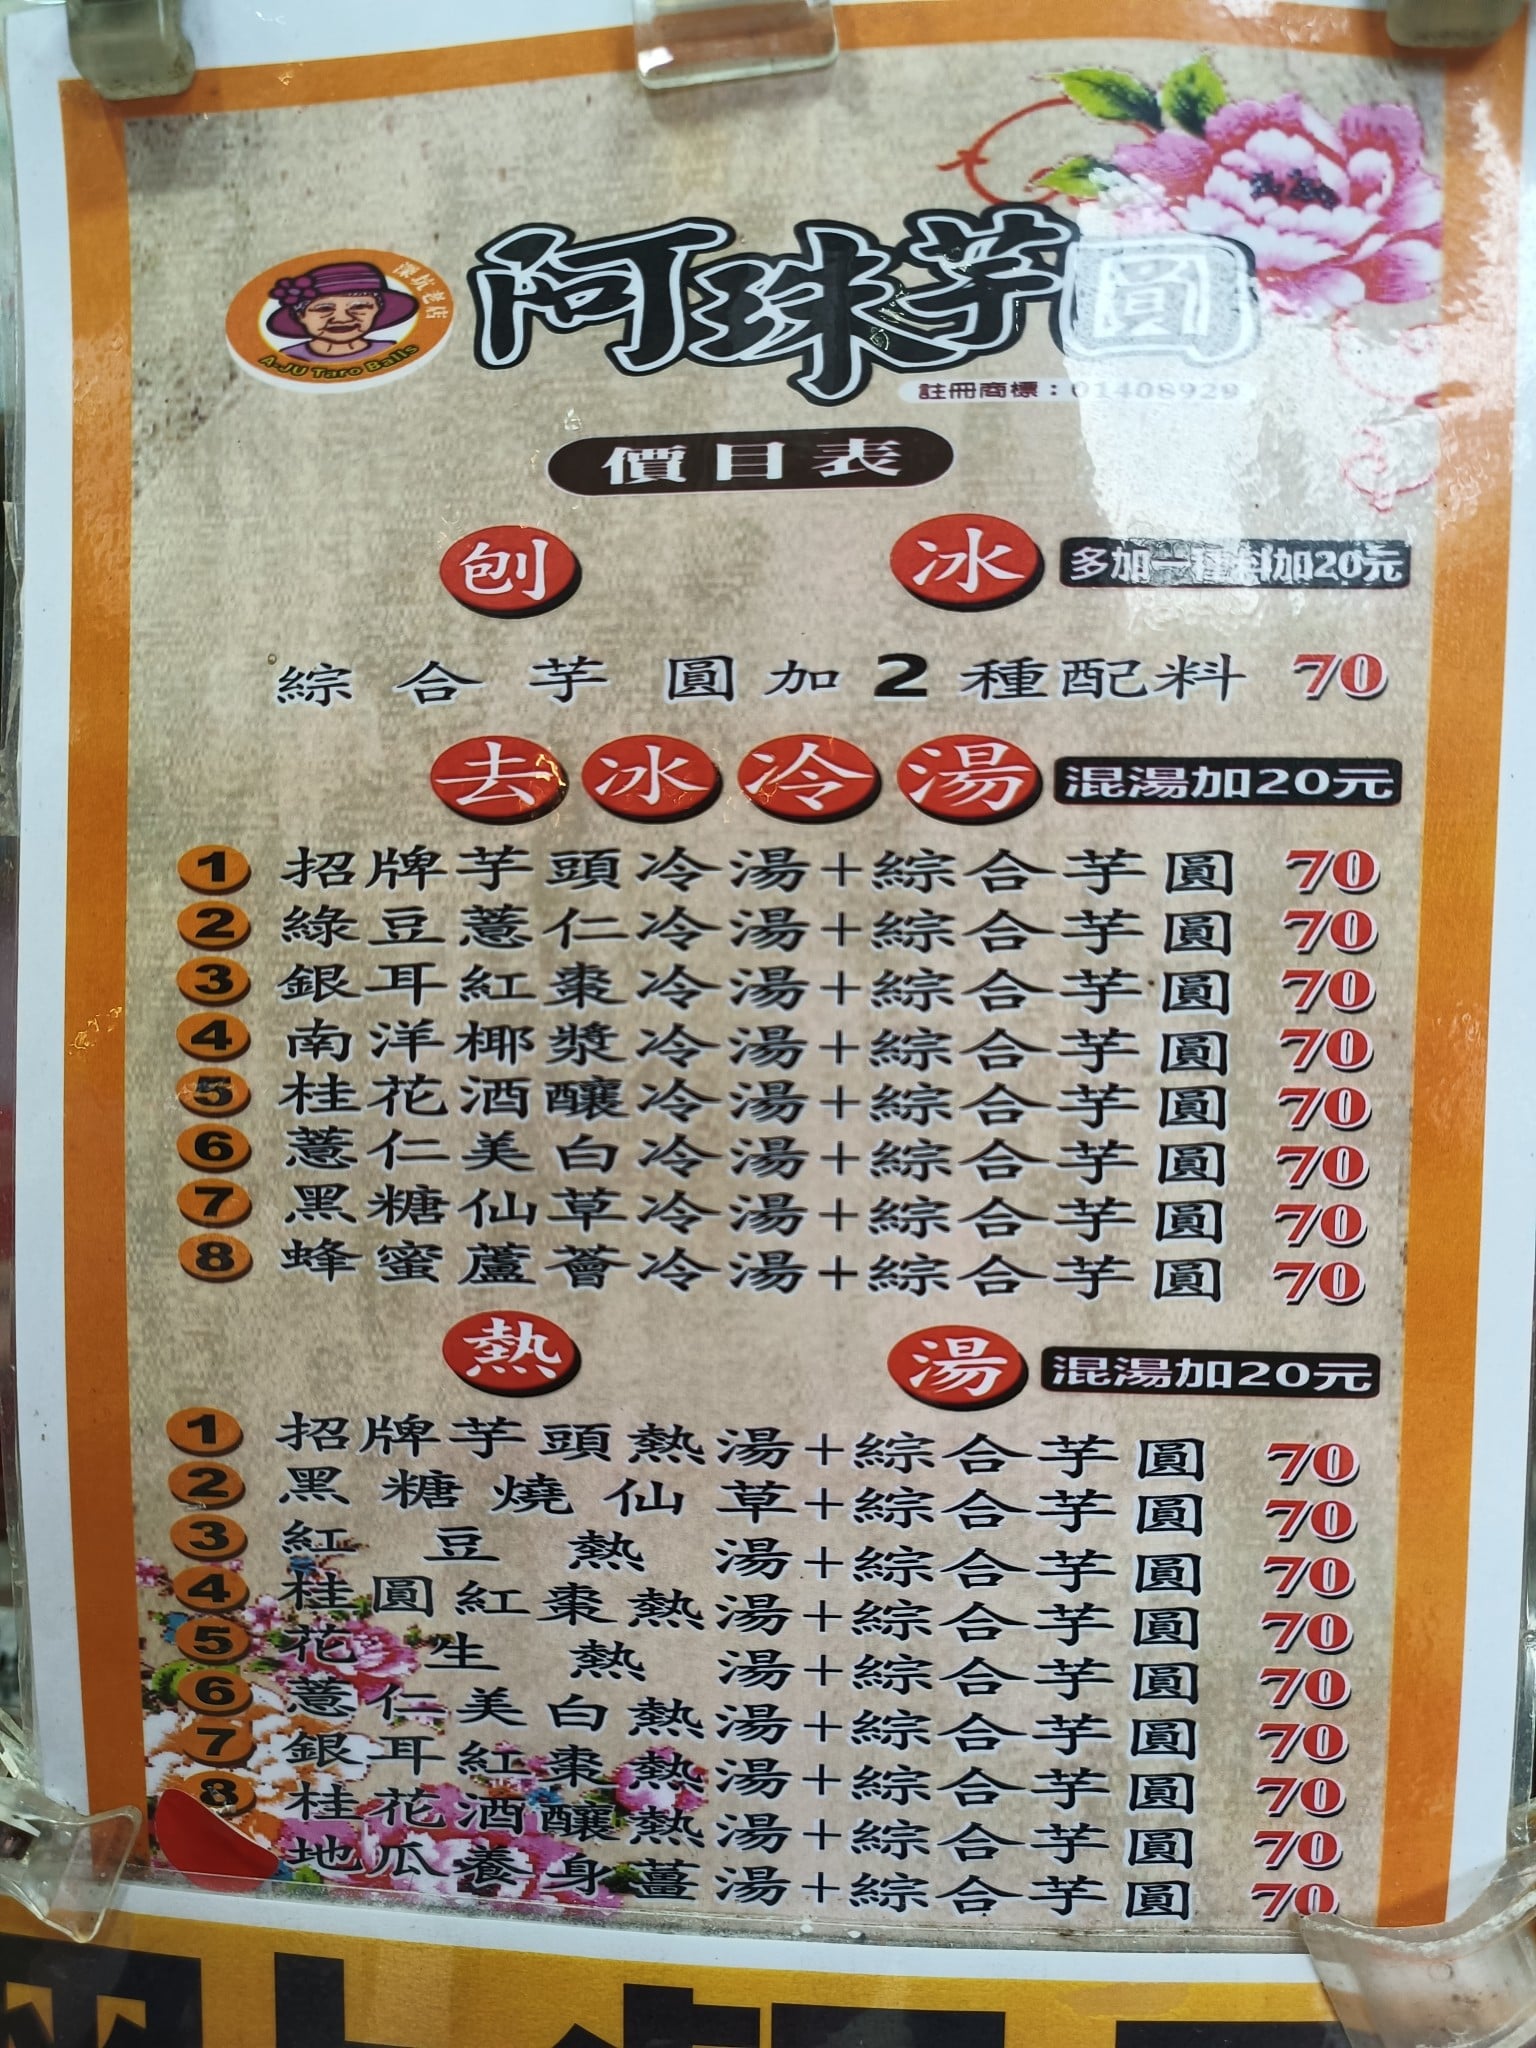 深坑老店
A-JU Taro Balls
阿珠芋圓
註冊商標：01408929
價目表
刨冰 多加一種料加20元
綜合芋圓加2種配料 70
去冰冷湯 混湯加20元
1 招牌芋頭冷湯+綜合芋圓 70
2 綠豆薏仁冷湯+綜合芋圓 70
3 銀耳紅棗冷湯+綜合芋圓 70
4 南洋椰漿冷湯+綜合芋圓 70
5 桂花酒釀冷湯+綜合芋圓 70
6 薏仁美白冷湯+綜合芋圓 70
7 黑糖仙草冷湯+綜合芋圓 70
8 蜂蜜蘆薈冷湯+綜合芋圓 70
熱湯 混湯加20元
1 招牌芋頭熱湯+綜合芋圓 70
2 黑糖燒仙草+綜合芋圓 70
3 紅豆熱湯+綜合芋圓 70
4 桂圓紅棗熱湯+綜合芋圓 70
5 花生熱湯+綜合芋圓 70
6 薏仁美白熱湯+綜合芋圓 70
7 銀耳紅棗熱湯+綜合芋圓 70
8 桂花酒釀熱湯+綜合芋圓 70
地瓜養身薑湯+綜合芋圓 70